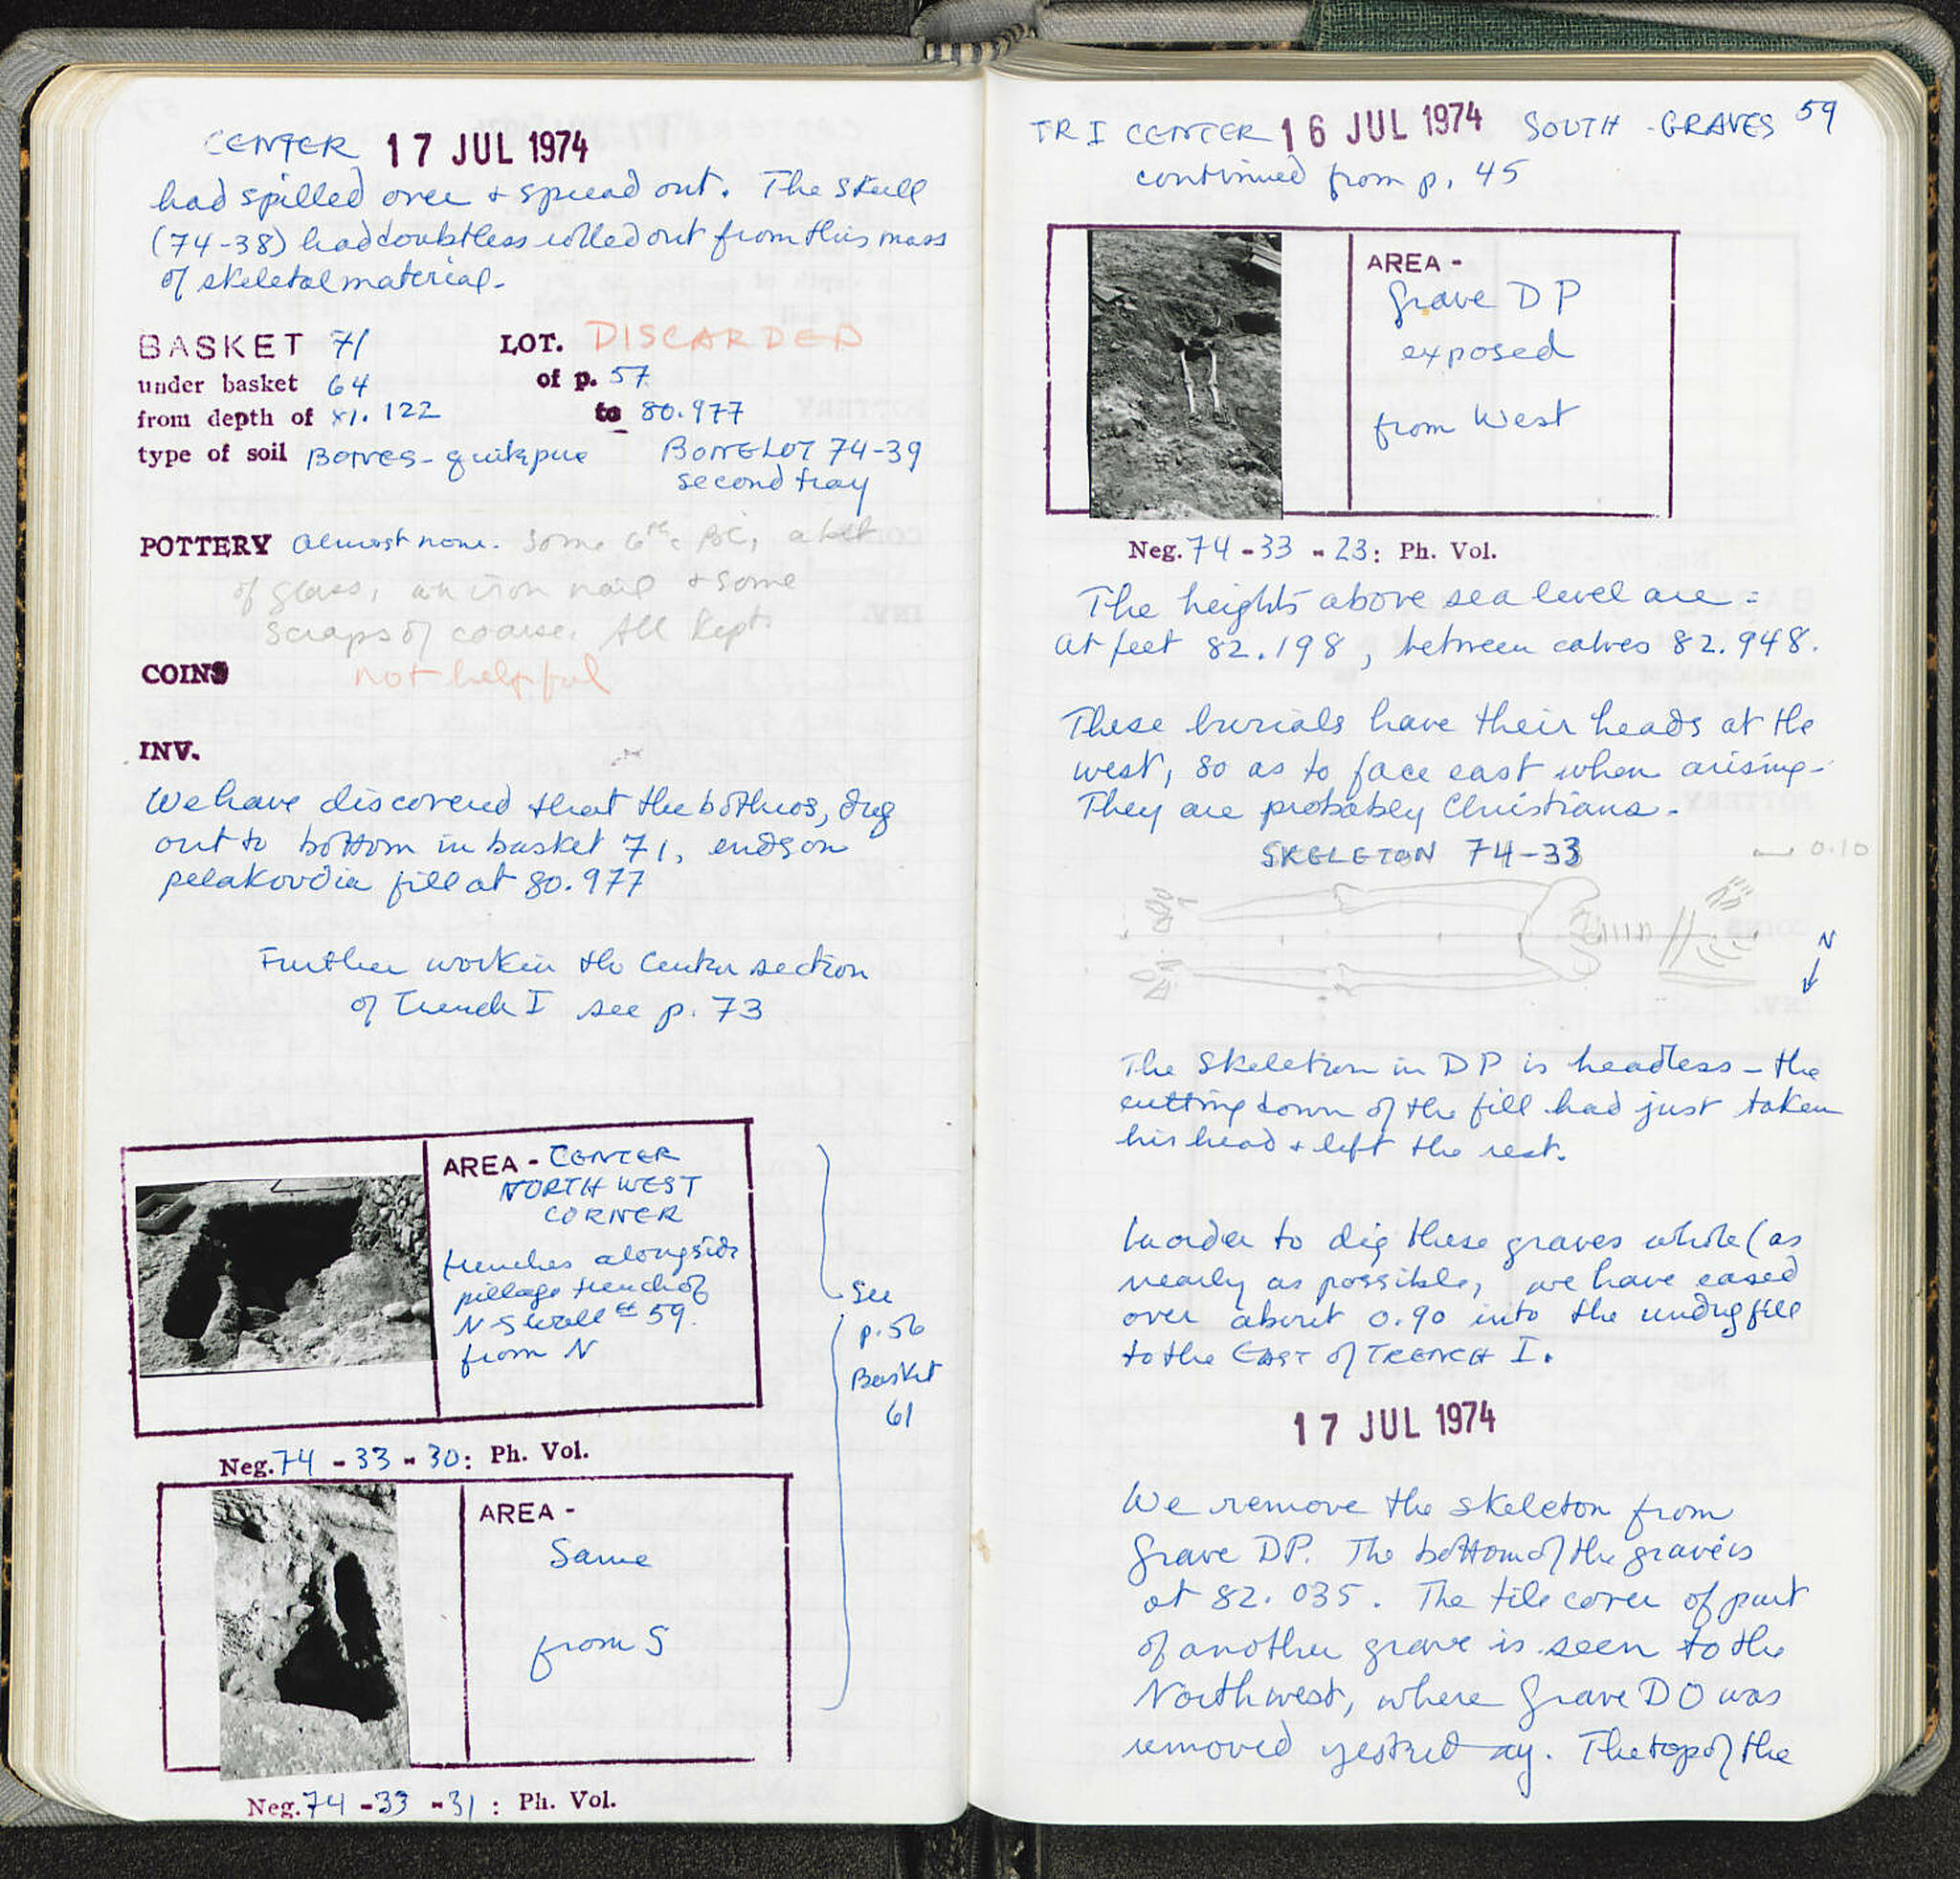 CENTER 17 JUL 1974
had spilled over + spread out. The skull
(74-38) had doubtless rolled out from this mass
of skeletal material.
BASKET 71 LOT. DISCARDED
under basket 64 of p. 57
from depth of 81.122 to 80.977
type of soil Bones - quite pure BONE LOT 74-39
second tray
POTTERY almost none. Some 6th c BC, a bit
of glass, an iron nail + some
scraps of coarse. All kept.
COINS not helpful
INV.
We have discovered that the bothros, dug
out to bottom in basket 71, ends on
pelakovdia fill at 80.977
Further work in the Center section
of Trench I see p. 73
AREA - CENTER
NORTH WEST
CORNER
trenches alongside
pillage trench of
N-S wall # 59.
from N
See
p. 56
Basket
61
Neg. 74 - 33 - 30: Ph. Vol.
AREA -
Same
from S
Neg. 74 - 33 - 31 : Ph. Vol.
TR I CENTER 16 JUL 1974 SOUTH - GRAVES 59
continued from p. 45
AREA -
Grave DP
exposed
from West
Neg. 74 - 33 - 23: Ph. Vol.
The heights above sea level are =
at feet 82.198, between calves 82.948.
These burials have their heads at the
west, so as to face east when arising.
They are probably Christians.
SKELETON 74-33
0.10
N
The skeleton in DP is headless - the
cutting down of the fill had just taken
his head + left the rest.
In order to dig these graves whole (as
nearly as possible, we have eased
over about 0.90 into the undug fill
to the EAST of TRENCH I.
17 JUL 1974
We remove the skeleton from
Grave DP. The bottom of the grave is
at 82.035. The tile cover of part
of another grave is seen to the
Northwest, where Grave DO was
removed yesterday. The top of the